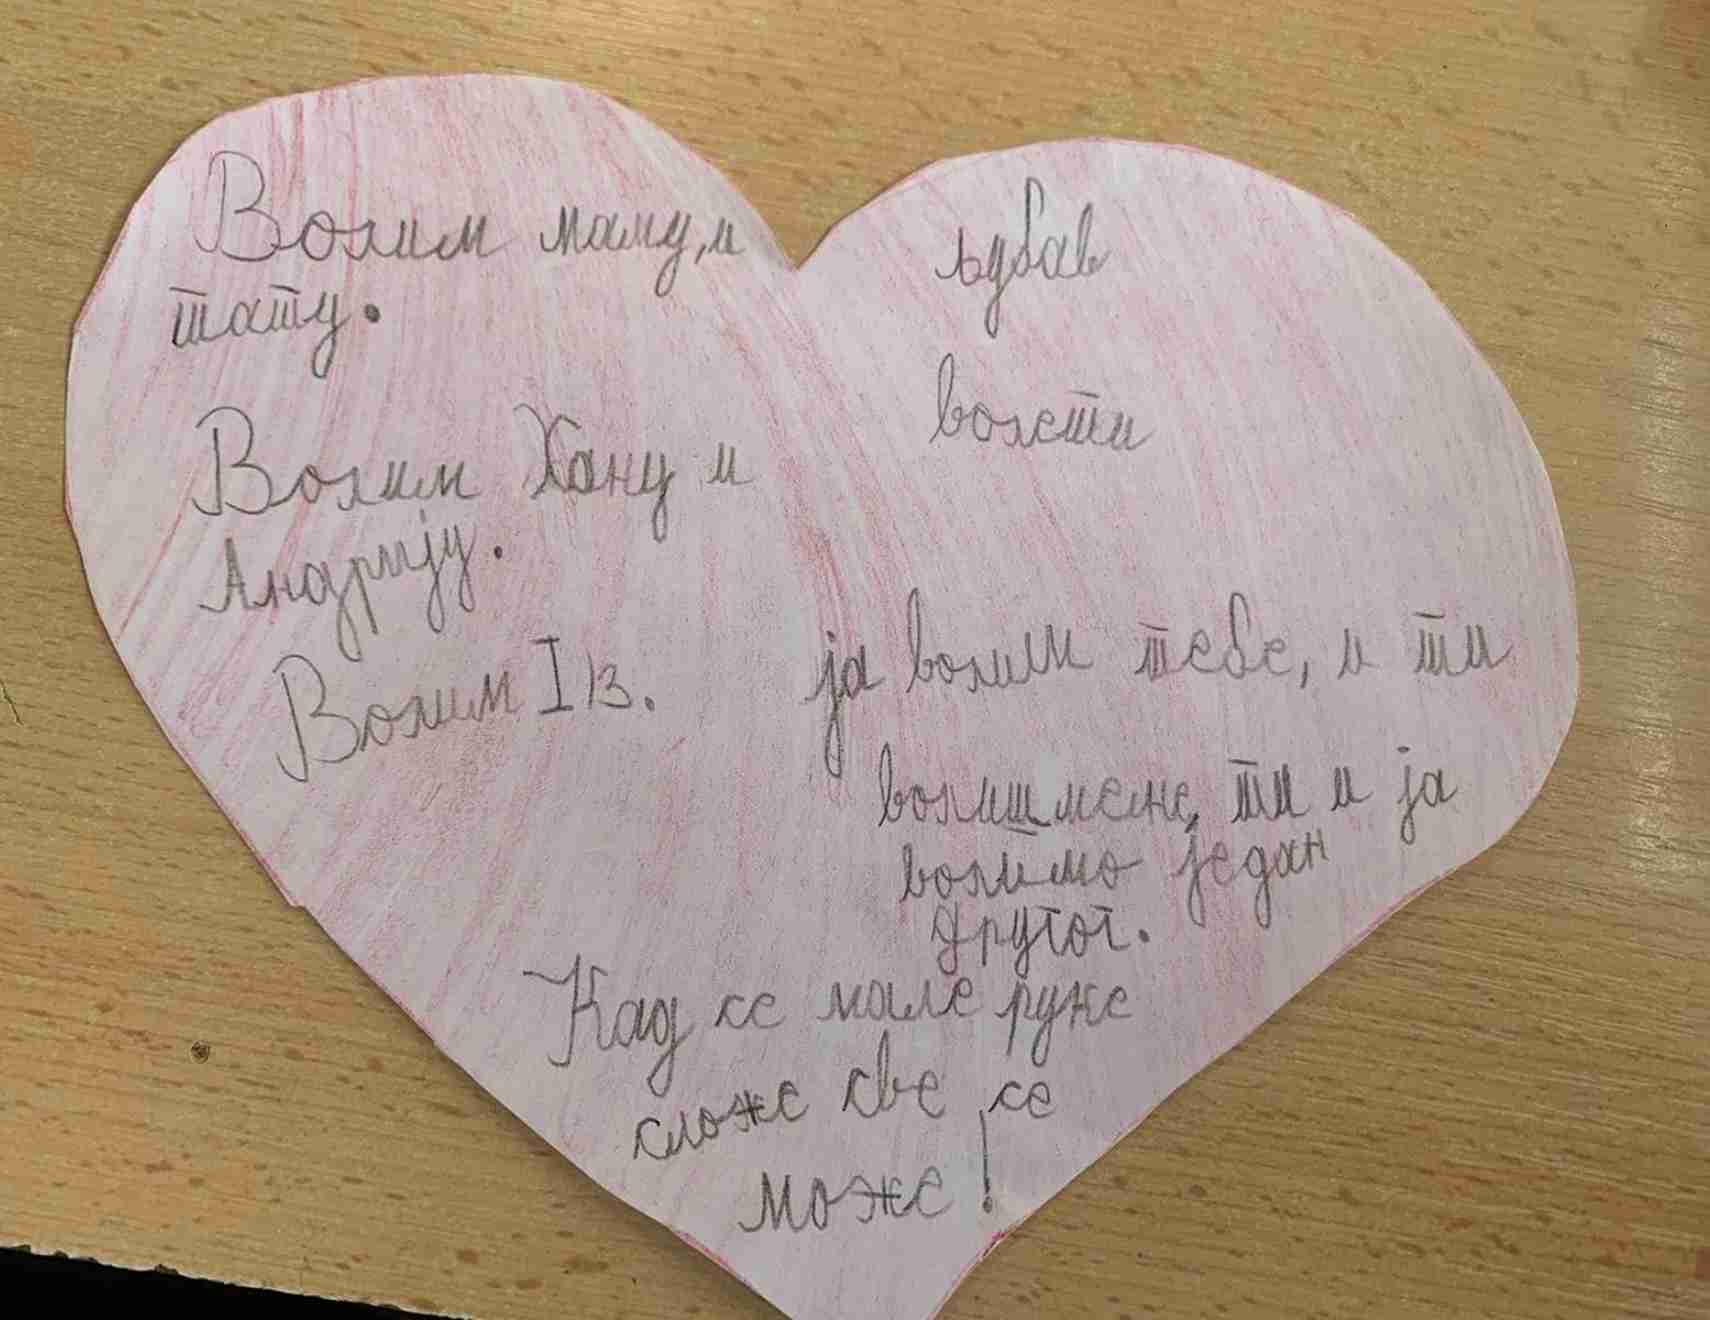 Волим маму, и
тату.
Волим Хану и
Андрију.
Волим I в.
љубав
волети
ја волим тебе, и ти
волиш мене, ти и ја
волимо један
другог.
Кад се мале руке
сложе све се
може!